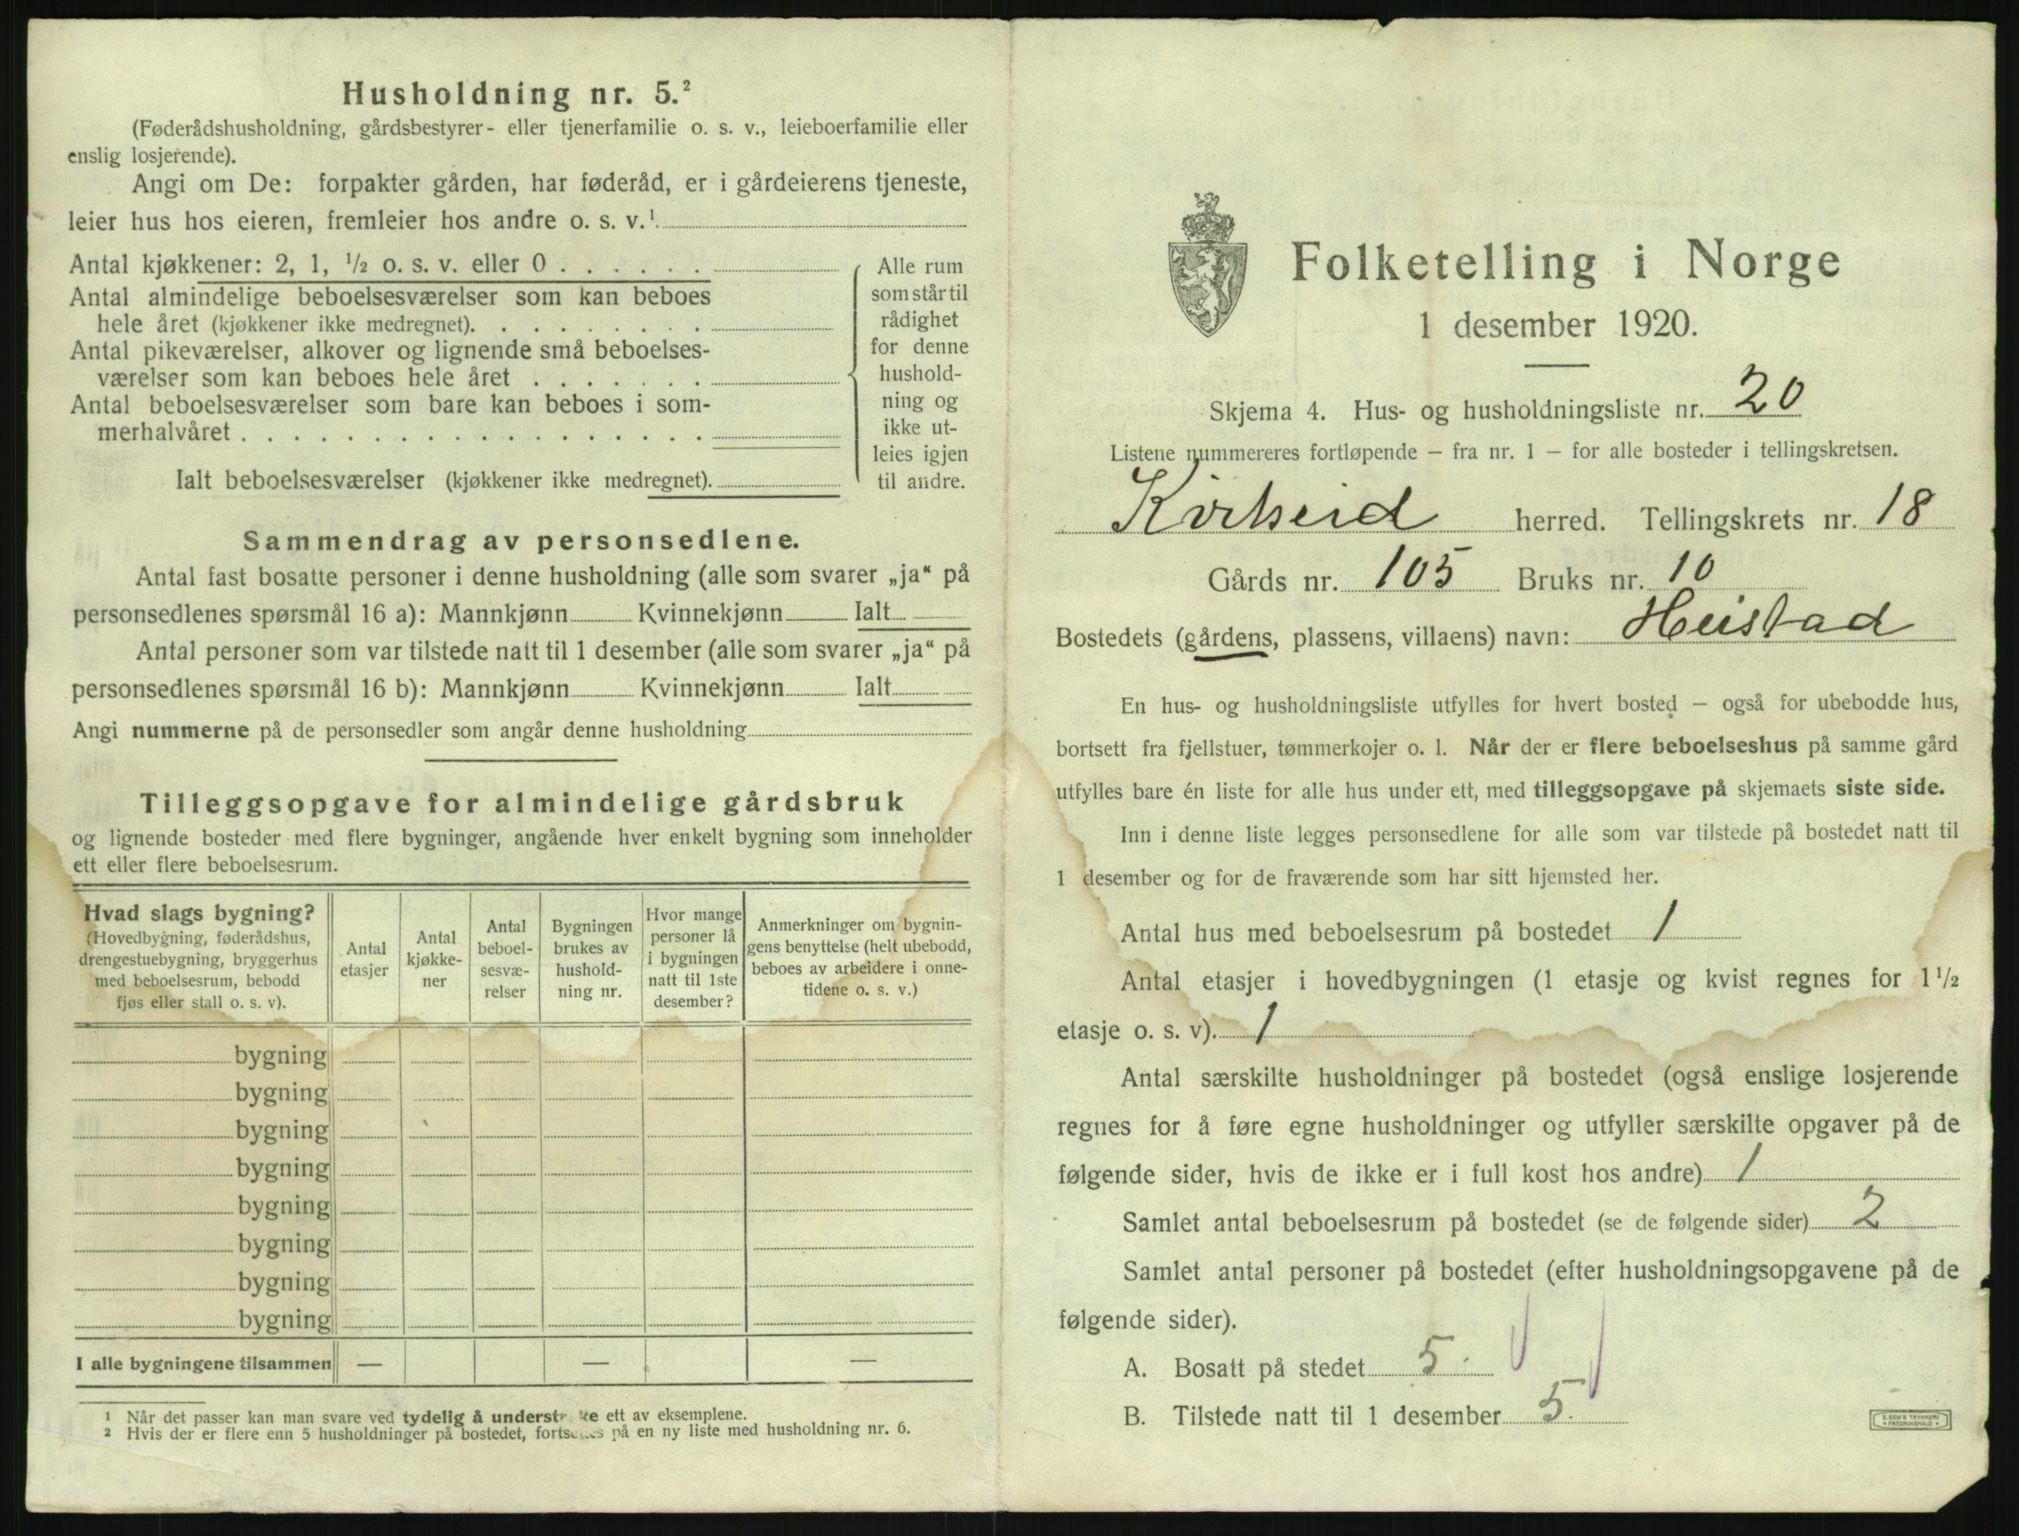 Husholdning nr. 5.²
(Føderådshusholdning, gårdsbestyrer- eller tjenerfamilie o. s. v., leieboerfamilie eller
enslig losjerende).
Angi om De: forpakter gården, har føderåd, er i gårdeierens tjeneste,
leier hus hos eieren, fremleier hos andre o. s. v.¹
Antal kjøkkener: 2, 1, ½ o. s. v. eller 0 . . . . . .
Antal almindelige beboelsesværelser som kan beboes
hele året (kjøkkener ikke medregnet). . . . . . . . .
Antal pikeværelser, alkover og lignende små beboelses-
værelser som kan beboes hele året . . . . . . .
Antal beboelsesværelser som bare kan beboes i som-
merhalvåret . . . . . . . . . . . . . . . . . .
Ialt beboelsesværelser (kjøkkener ikke medregnet).
Alle rum
som står til
rådighet
for denne
hushold-
ning og
ikke ut-
leies igjen
til andre.
Sammendrag av personsedlene.
Antal fast bosatte personer i denne husholdning (alle som svarer „ja“ på
personsedlenes spørsmål 16 a): Mannkjønn Kvinnekjønn Ialt
Antal personer som var tilstede natt til 1 desember (alle som svarer „ja“ på
personsedlenes spørsmål 16 b): Mannkjønn Kvinnekjønn Ialt
Angi nummerne på de personsedler som angår denne husholdning
Tilleggsopgave for almindelige gårdsbruk
og lignende bosteder med flere bygninger, angående hver enkelt bygning som inneholder
ett eller flere beboelsesrum.
Hvad slags bygning?
(Hovedbygning, føderådshus,
drengestuebygning, bryggerhus
med beboelsesrum, bebodd
fjøs eller stall o. s. v).
Antal
etasjer
Antal
kjøkke-
ner
Antal
beboel-
sesvæ-
relser
Bygningen
brukes av
hushold-
ning nr.
Hvor mange
personer lå
i bygningen
natt til 1ste
desember?
Anmerkninger om bygnin-
gens benyttelse (helt ubebodd,
beboes av arbeidere i onne-
tidene o. s. v.)
bygning
bygning
bygning
bygning
bygning
bygning
bygning
bygning
I alle bygningene tilsammen — — —
1 Når det passer kan man svare ved tydelig å understreke ett av eksemplene.
2 Hvis der er flere enn 5 husholdninger på bostedet, fortsettes på en ny liste med husholdning nr. 6.
Folketelling i Norge
1 desember 1920.
Skjema 4. Hus- og husholdningsliste nr. 20
Listene nummereres fortløpende — fra nr. 1 — for alle bosteder i tellingskretsen.
Kviteseid herred. Tellingskrets nr. 18
Gårds nr. 105 Bruks nr. 10
Bostedets (gårdens, plassens, villaens) navn: Heistad
En hus- og husholdningsliste utfylles for hvert bosted — også for ubebodde hus,
bortsett fra fjellstuer, tømmerkojer o. l. Når der er flere beboelseshus på samme gård
utfylles bare én liste for alle hus under ett, med tilleggsopgave på skjemaets siste side.
Inn i denne liste legges personsedlene for alle som var tilstede på bostedet natt til
1 desember og for de fraværende som har sitt hjemsted her.
Antal hus med beboelsesrum på bostedet 1
Antal etasjer i hovedbygningen (1 etasje og kvist regnes for 1½
etasje o. s. v). 1
Antal særskilte husholdninger på bostedet (også enslige losjerende
regnes for å føre egne husholdninger og utfyller særskilte opgaver på de
følgende sider, hvis de ikke er i full kost hos andre) 1
Samlet antal beboelsesrum på bostedet (se de følgende sider) 2
Samlet antal personer på bostedet (efter husholdningsopgavene på de
følgende sider).
A. Bosatt på stedet 5.
B. Tilstede natt til 1 desember 5.